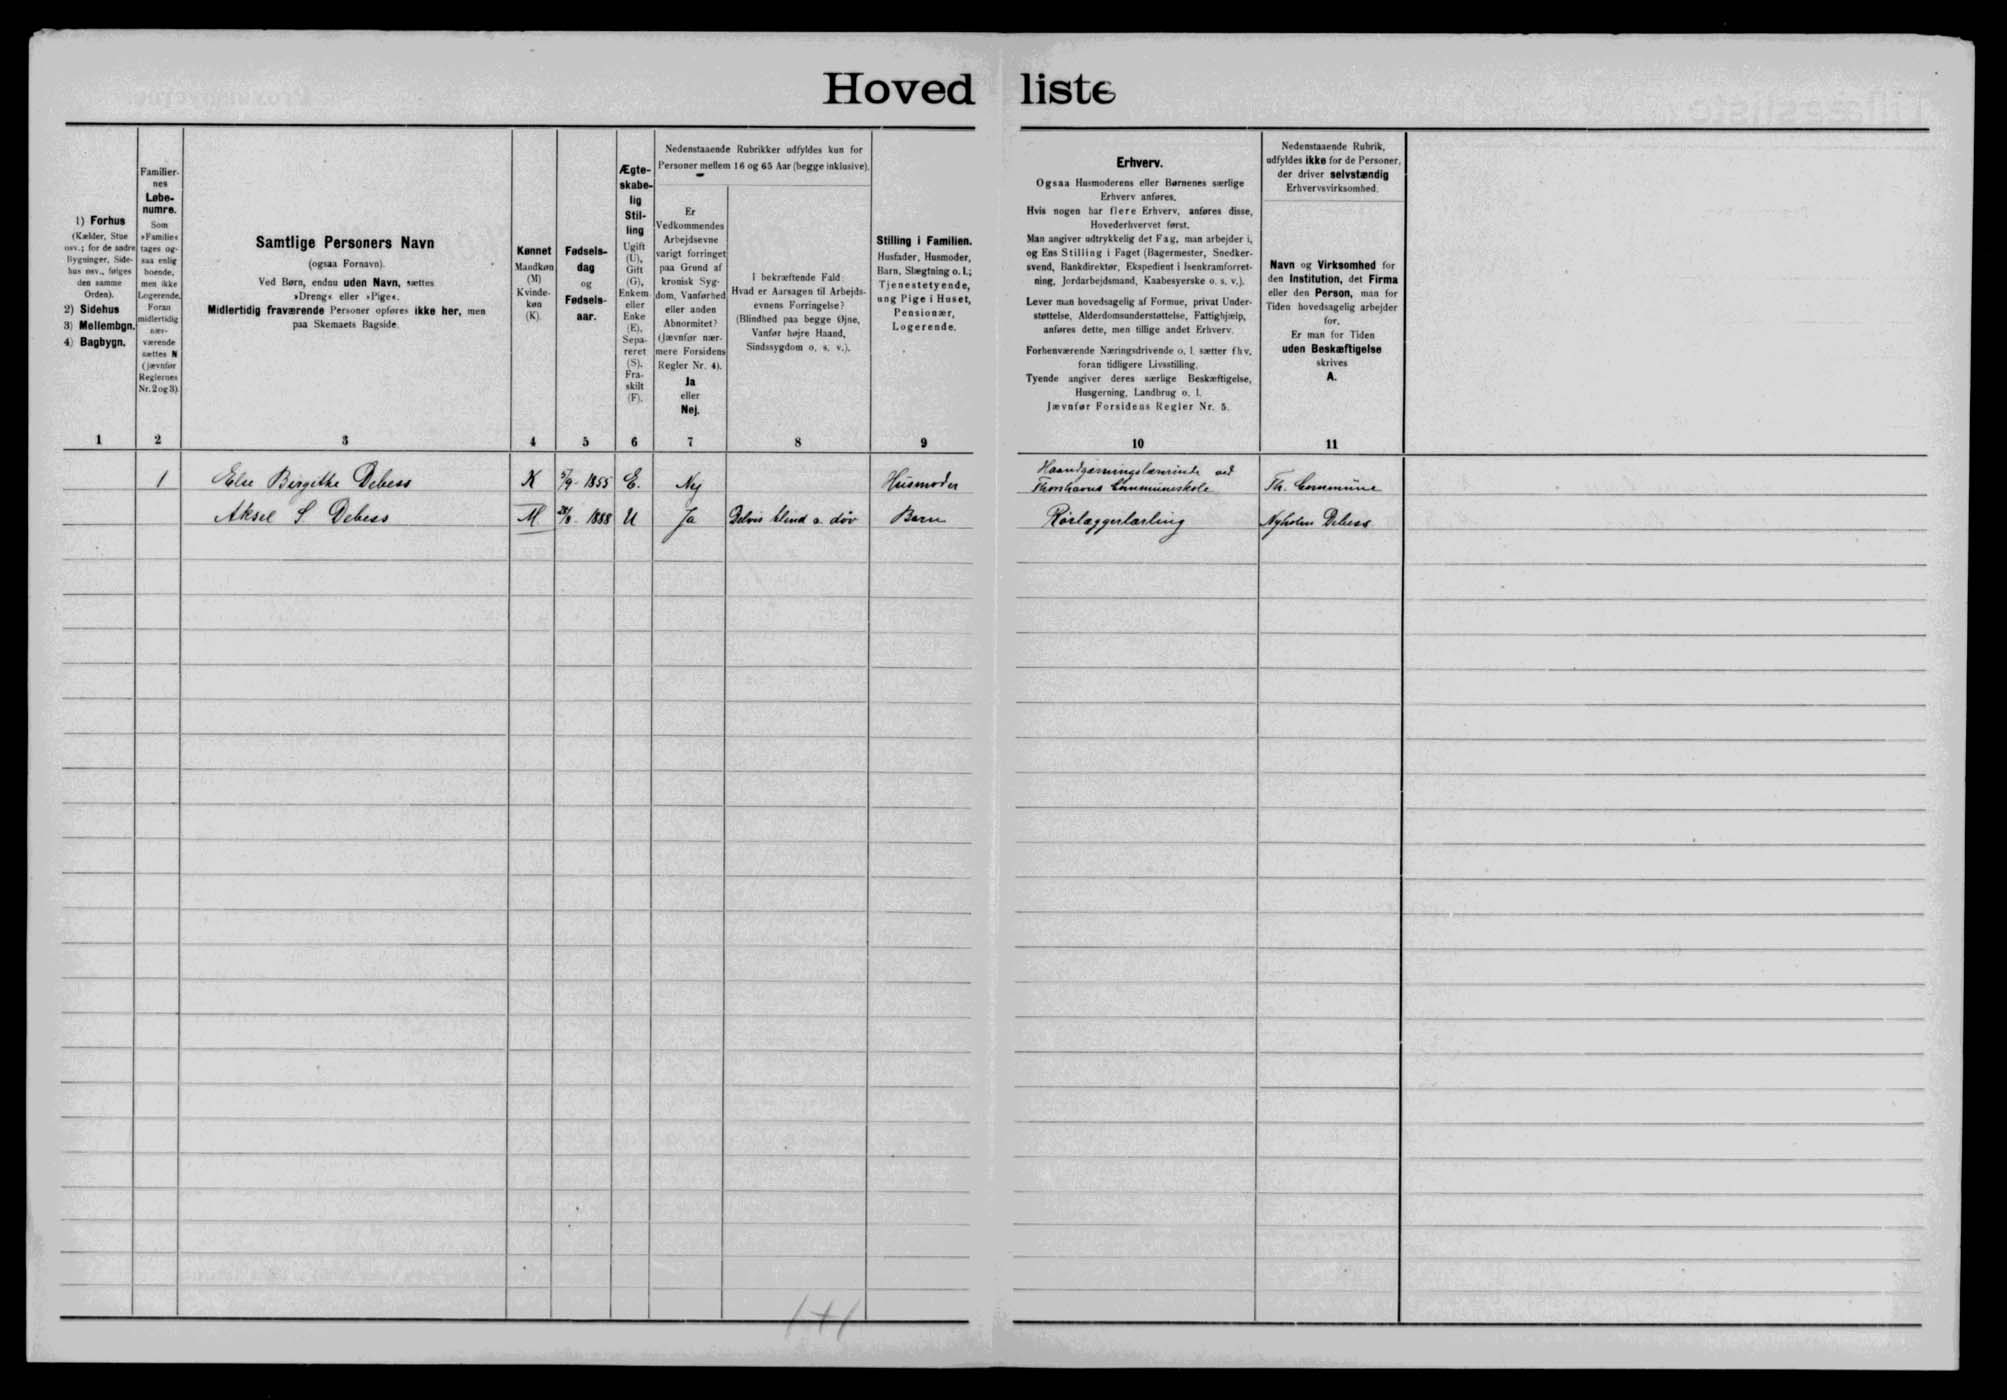 Hovedliste
1) Forhus
(Kælder, Stue
osv.; for de andre
Bygninger, Side-
hus osv., følges
den samme
Orden).
2) Sidehus
3) Mellembgn.
4) Bagbygn.
1
Familier-
nes
Løbe-
numre.
Som
»Familie«
tages og-
saa enlig
boende,
men ikke
Logerende.
Foran
midlertidig
nær-
værende
sættes N
(jævnfør
Reglernes
Nr. 2 og 3).
2
Samtlige Personers Navn
(ogsaa Fornavn).
Ved Børn, endnu uden Navn, sættes
»Dreng« eller »Pige«.
Midlertidig fraværende Personer opføres ikke her, men
paa Skemaets Bagside.
3
Kønnet
Mandkøn
(M)
Kvinde-
køn
(K).
4
Fødsels-
dag
og
Fødsels-
aar.
5
Ægte-
skabe-
lig
Stil-
ling
Ugift
(U),
Gift
(G),
Enkem.
eller
Enke
(E),
Sepa-
reret
(S),
Fra-
skilt
(F).
6
Nedenstaaende Rubrikker udfyldes kun for
Personer mellem 16 og 65 Aar (begge inklusive).
Er
Vedkommendes
Arbejdsevne
varigt forringet
paa Grund af
kronisk Syg-
dom, Vanførhed
eller anden
Abnormitet?
(Jævnfør nær-
mere Forsidens
Regler Nr. 4).
Ja
eller
Nej.
7
I bekræftende Fald:
Hvad er Aarsagen til Arbejds-
evnens Forringelse?
(Blindhed paa begge Øjne,
Vanfør højre Haand,
Sindssygdom o. s. v.).
8
Stilling i Familien.
Husfader, Husmoder,
Barn, Slægtning o. l.;
Tjenestetyende,
ung Pige i Huset,
Pensionær,
Logerende.
9
Erhverv.
Ogsaa Husmoderens eller Børnenes særlige
Erhverv anføres.
Hvis nogen har flere Erhverv, anføres disse,
Hovederhvervet først.
Man angiver udtrykkelig det Fag, man arbejder i,
og Ens Stilling i Faget (Bagermester, Snedker-
svend, Bankdirektør, Ekspedient i Isenkramforret-
ning, Jordarbejdsmand, Kaabesyerske o. s. v.).
Lever man hovedsagelig af Formue, privat Under-
støttelse, Alderdomsunderstøttelse, Fattighjælp,
anføres dette, men tillige andet Erhverv.
Forhenværende Næringsdrivende o. l. sætter fhv.
foran tidligere Livsstilling.
Tyende angiver deres særlige Beskæftigelse,
Husgerning, Landbrug o. l.
Jævnfør Forsidens Regler Nr. 5.
10
Nedenstaaende Rubrik,
udfyldes ikke for de Personer,
der driver selvstændig
Erhvervsvirksomhed.
Navn og Virksomhed for
den Institution, det Firma
eller den Person, man for
Tiden hovedsagelig arbejder
for.
Er man for Tiden
uden Beskæftigelse
skrives
A.
11
1 Else Birgitte Debess K 5/9 1855 E. Nej Husmoder Haandgerningslærerinde ved Thorshavns Communeskole Th. Commune
Aksel S Debess M 1888 U Ja Delvis blind o. døv Barn Rørlæggerlærling Nyholm Debess
1+1